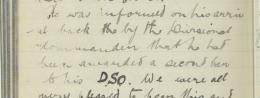 He was informed on his arriv
-al back the by the Divisional
Commander that he had
been awarded a second bar
to his DSO. We were all
very pleased to hear this and